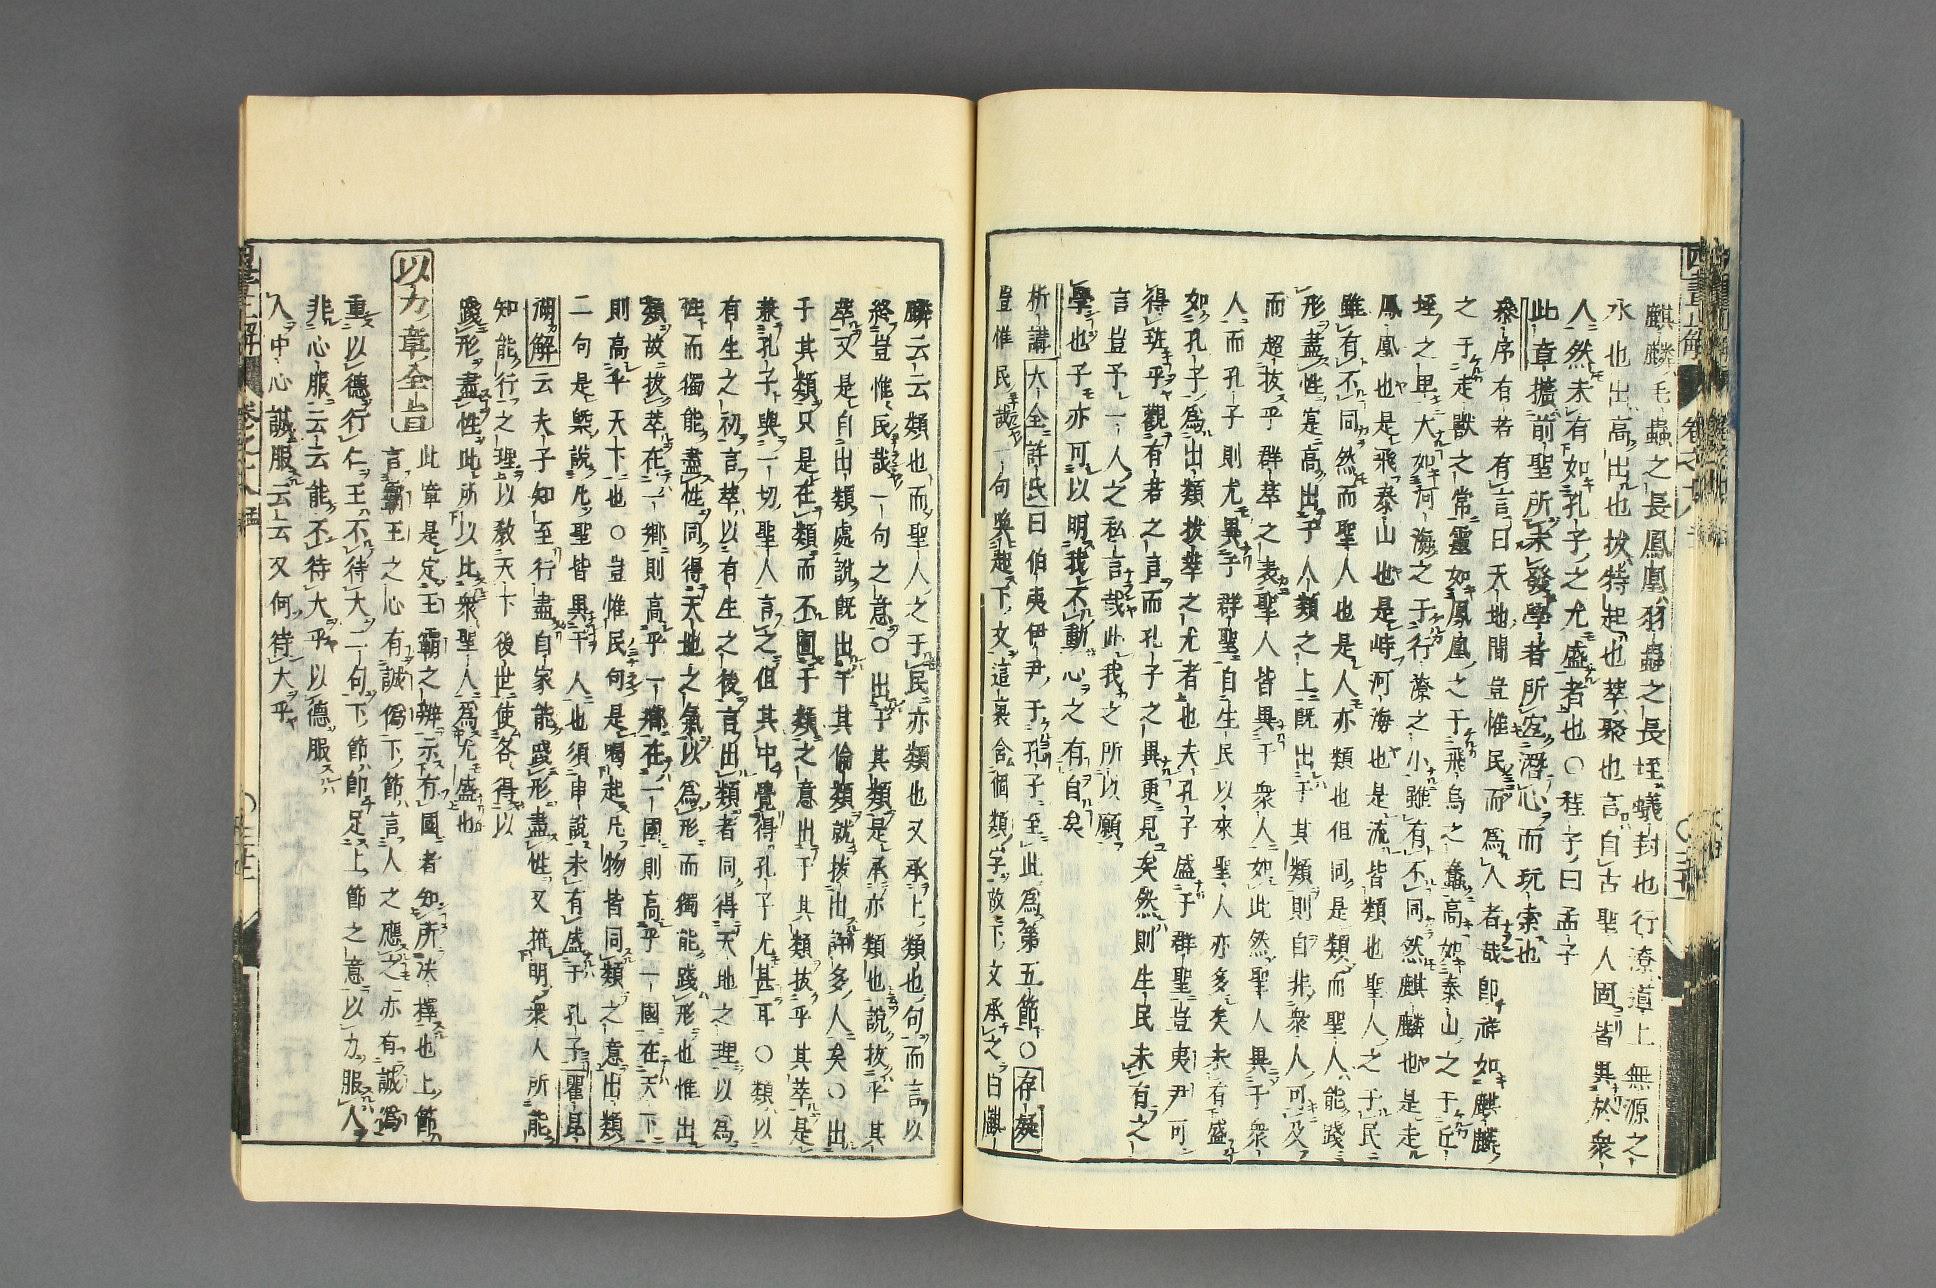 麒麟毛蟲之長鳳凰羽蟲之長垤蟻封也行潦道上無源之
水也出高出也拔特起也萃聚也言自古聖人固皆異於衆
人然未有如孔子之尤盛者也○程子曰孟子
此章擴前聖所未發學者所宜潛心而玩索也
叅序有若有言曰天地間豈惟民而為人者哉即祥如麒麟
之于走獸之常靈如鳳凰之于飛鳥之蠢高如泰山之于丘
垤之卑大如河海之于行潦之小雖有不同然麒麟也是走
鳳凰也是飛泰山也是峙河海也是流皆類也聖人之于民
雖有不同然而聖人也是人亦類也但同是類而聖人能踐
形盡性寔高出乎人類之上既出于其類則自非衆人可及
而超拔乎群萃之表聖人皆異于衆人如此然聖人異于衆
人而孔子則尤異乎群聖自生民以來聖人亦多矣未有盛
如孔子為出類拔萃之尤者也夫孔子盛于群聖豈夷尹可
得班乎觀有若之言而孔子之異更見矣然則生民未有之
言豈予一人之私言哉此我之所以願
學也予亦可以明我不動心之有自矣
析講大全許氏曰伯夷伊尹于孔子至此為第五節○存疑
豈惟民哉一句喚起下文這裏含個類字故下文承之曰麒
麟云云類也而聖人之于民亦類也又承上類也句而言以
終豈惟民哉一句之意○出于其類是承亦類也說拔乎其
萃又是自出類處說既出乎其倫類就拔出許多人矣○出
于其類只是在類而不囿于類之意出于其類拔乎其萃是
兼孔子與一切聖人言之但其中覺得孔子尤甚耳○類以
有生之初言萃以有生之後言出類者同得天地之理以為
性而獨能盡性同得天地之氣以為形而獨能踐形也惟出
類故拔萃在一鄉則高乎一鄉在一國則高乎一國在天下
則高乎天下也○豈惟民句是喝起凡物皆同類之意出類
二句是槩說凡聖皆異于人也須申說未有盛于孔子瞿昆
湖解云夫子知至行盡自家能踐形盡性又推明衆人所能
知能行之理以敎天下後世使各得以
踐形盡性此所以比衆聖人為尤盛也
以力章全旨此章是定王霸之辨示有國者知所决擇也上節
言霸王之心有誠偽下節言人之應之亦有誠偽
重以德行仁王不待大二句下節即足上節之意以力服人
非心服云云能不待大乎以德服
人中心誠服云云又何待大乎